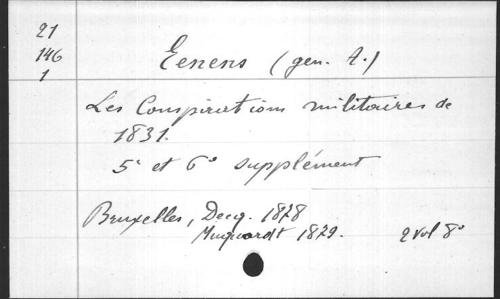 21
146
1
Eenens (gen. A.)
Les Conspirations militaires de
1831.
5e et 6e supplément
Bruxelles, Decq. 1878
Muquardt 1879. 2 vol 8°